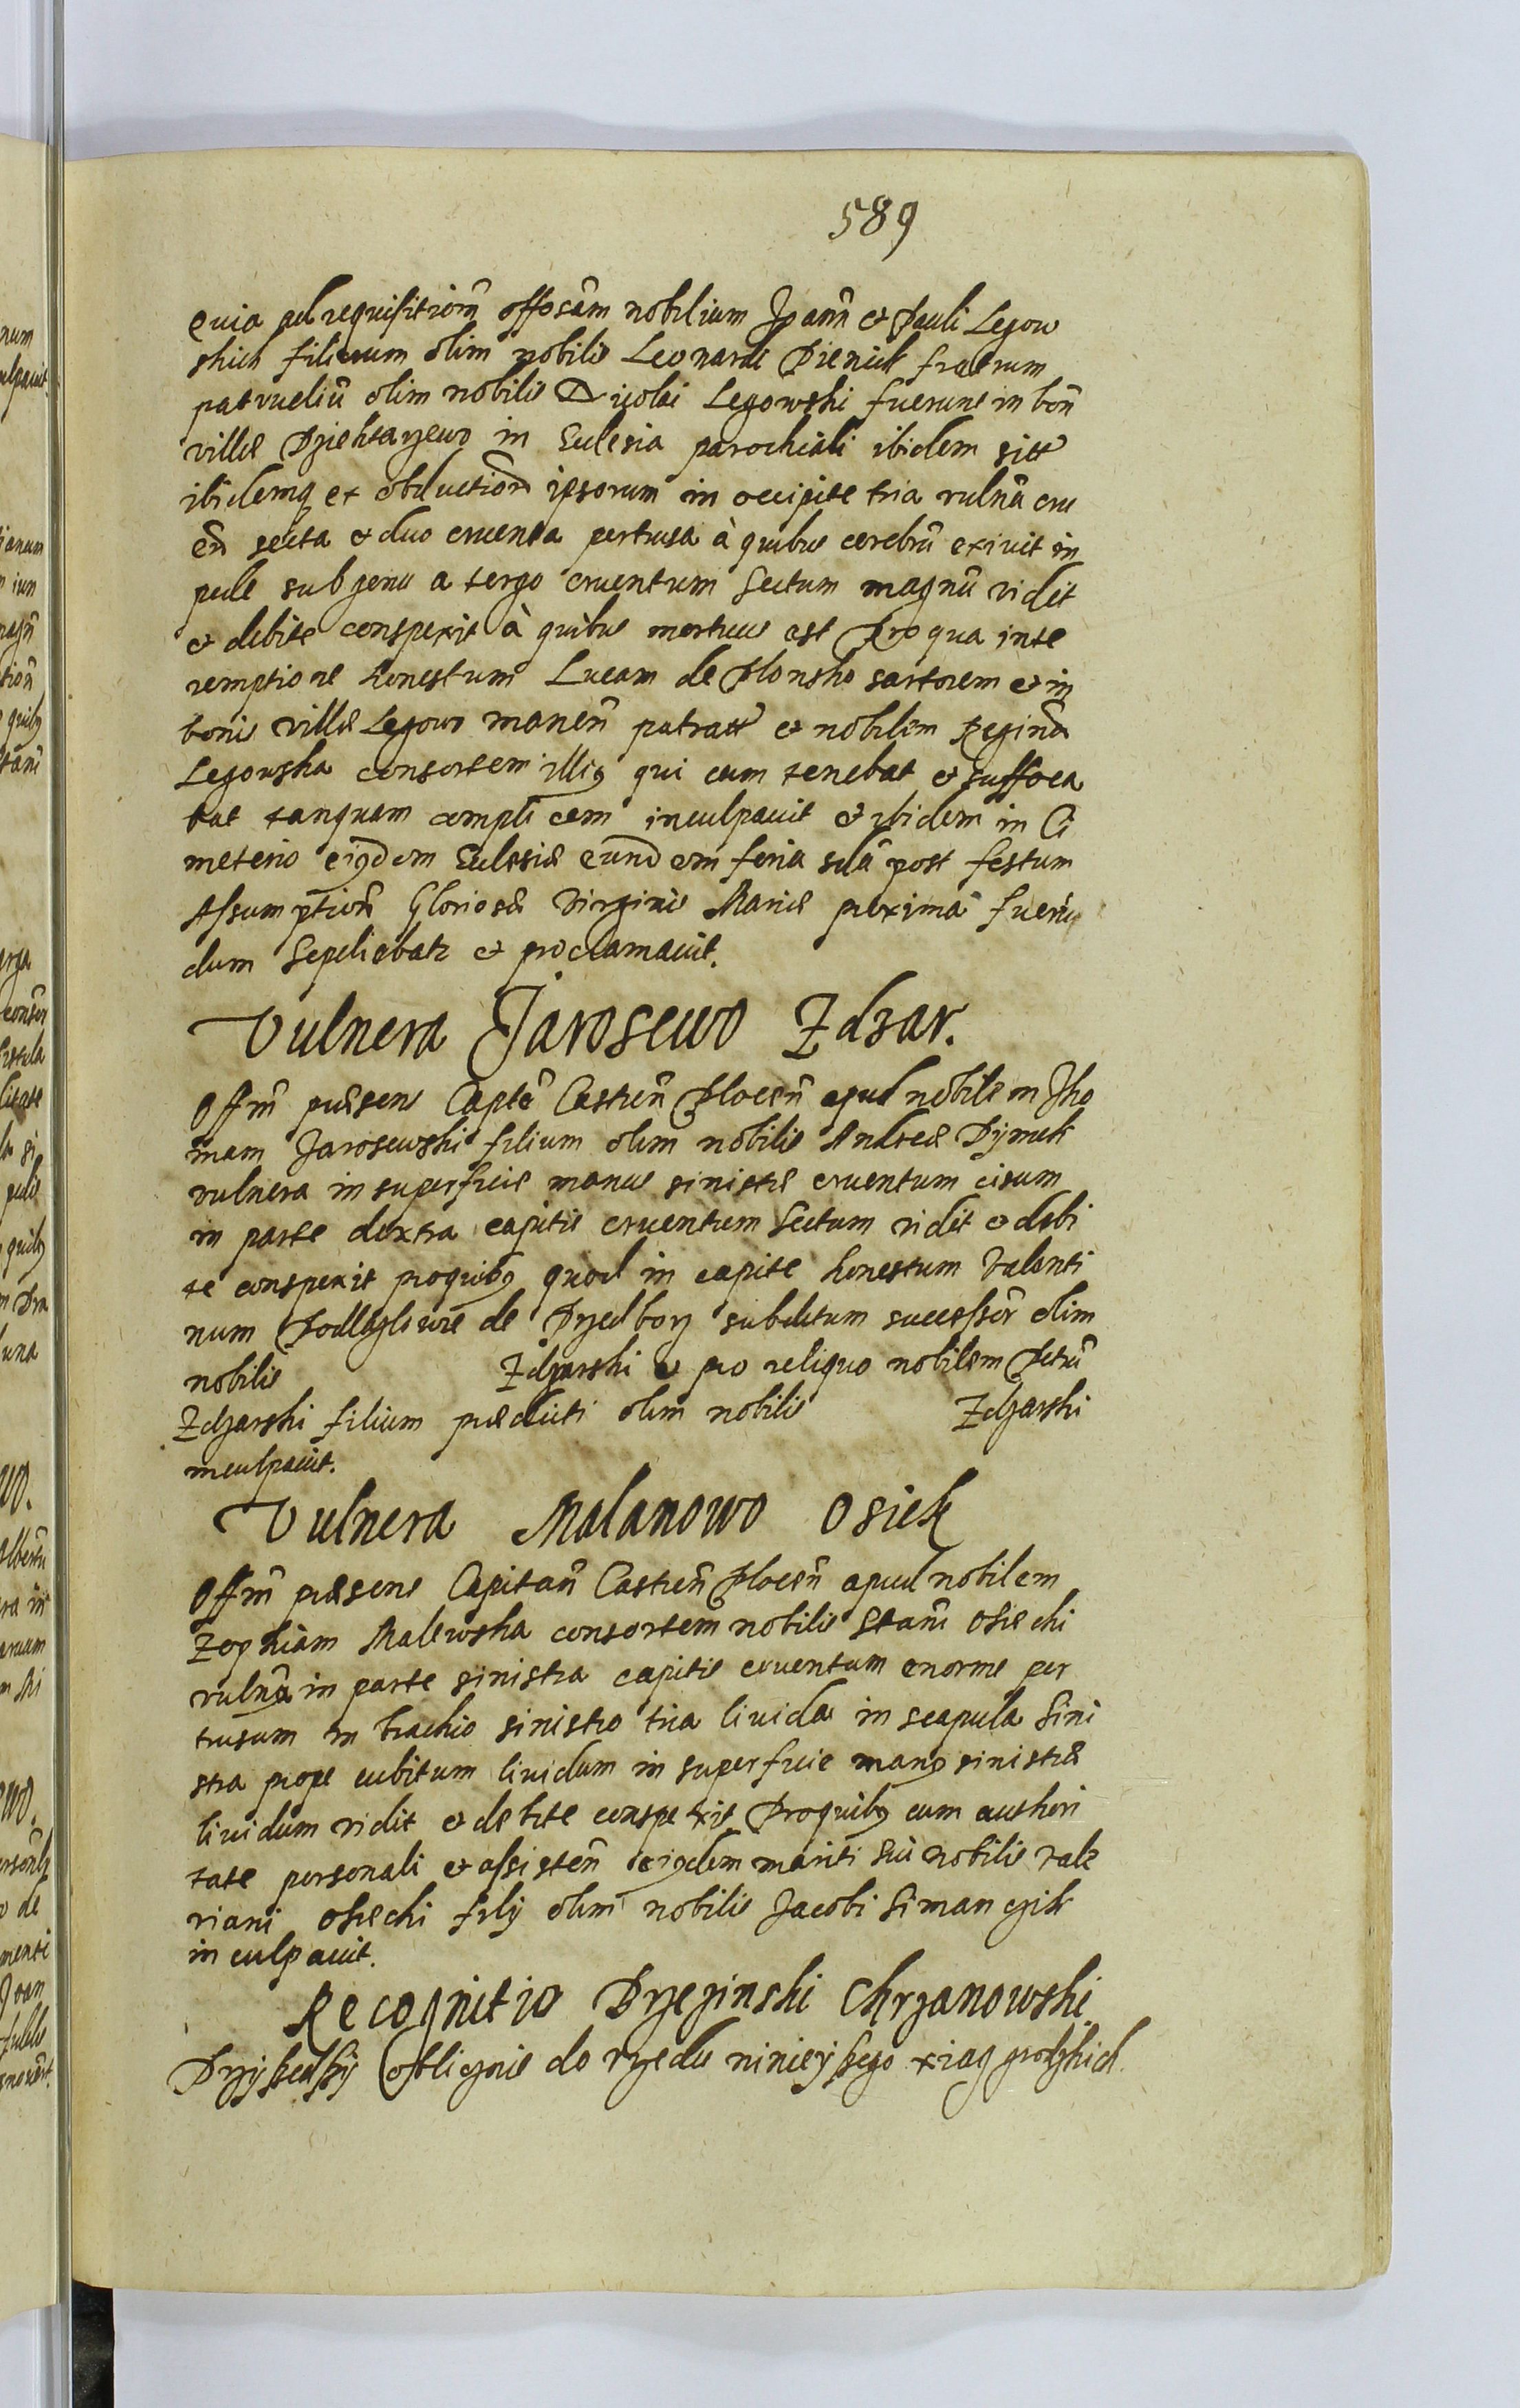 589
quia ad requisitiom̃ offosam̃ nobilium Joann̄ et Pauli Legow
skich filiorum olim nobilis Leonardi Pieniek fratrum
patrueliũ olim nobilis Nicolai Legowski fuerunt in bon̄
villæ Dziektarzewo in Eclesia parochiali ibidem sitt
ibidemq et obductiom̃ ipsorum in occipite tria vulnã cru
eñ secta et duo cruenta pertusa à quibus cerebrũ exivit in
pede sub genu a tergo cruentum sectum magnũ vidit
et debite conspexit à quibus mortuus est Pro qua inte
remptione honestum Lucam de Plonsko sartorem et in
bonis villæ Legowo manen̄ patratt et nobilem Reginã
Legowska consortem illig qui eum tenebat et suffoca
bat tanquam complicem inculpavit et ibidem in Ci
meterio eigdem Eclesiæ eundem feria sdã post festum
Assumptiom̃ Gloriosæ Virginis Mariæ proxima
dum sepeliebatr et proclamavit.
Vulnera Jarosewo Zdzar.
Offm̃ præsens Captã Castren̄ Plocen̄ apud nobilem Tho
mam Jarosewski filium olim nobilis Andreæ Dymek
vulnera in superficie manus sinistræ cruentum cisum
in parte dextra capitis cruentum sectum vidit et debi
te conspexit proquibg quod in capite honestum Valenti
num de subditum successor̃ olim
nobilis Zdzarski et pro reliquo nobilem Petrũ
Zdzarski filium prædicti olim nobilis Zdzarski
inculpavit.
Vulnera Malanowo Osiek
Offm̃ præsens Capitan̄ Castren̄ Plocen̄ apud nobilem
Zophiam Malewska consortem nobilis Stani Osiecki
vulnã in parte sinistra capitis cruentum enorme per
tusum in brachio sinistro tria livida in scapula sini
stra prope cubitum lividum in superficie mang sinistræ
lividum vidit et debite conspexit Proquibg cum authori
tate personali et assisten̄ eigdem mariti sui nobilis Vale
riani Osiecki filij olim nobilis Jacobi Simanczik
inculpavit.
Recognitio Dzezinski Chrzanowski
Przyszedszy oblicznie do vrzedu ninieyszego xiag grodzkich